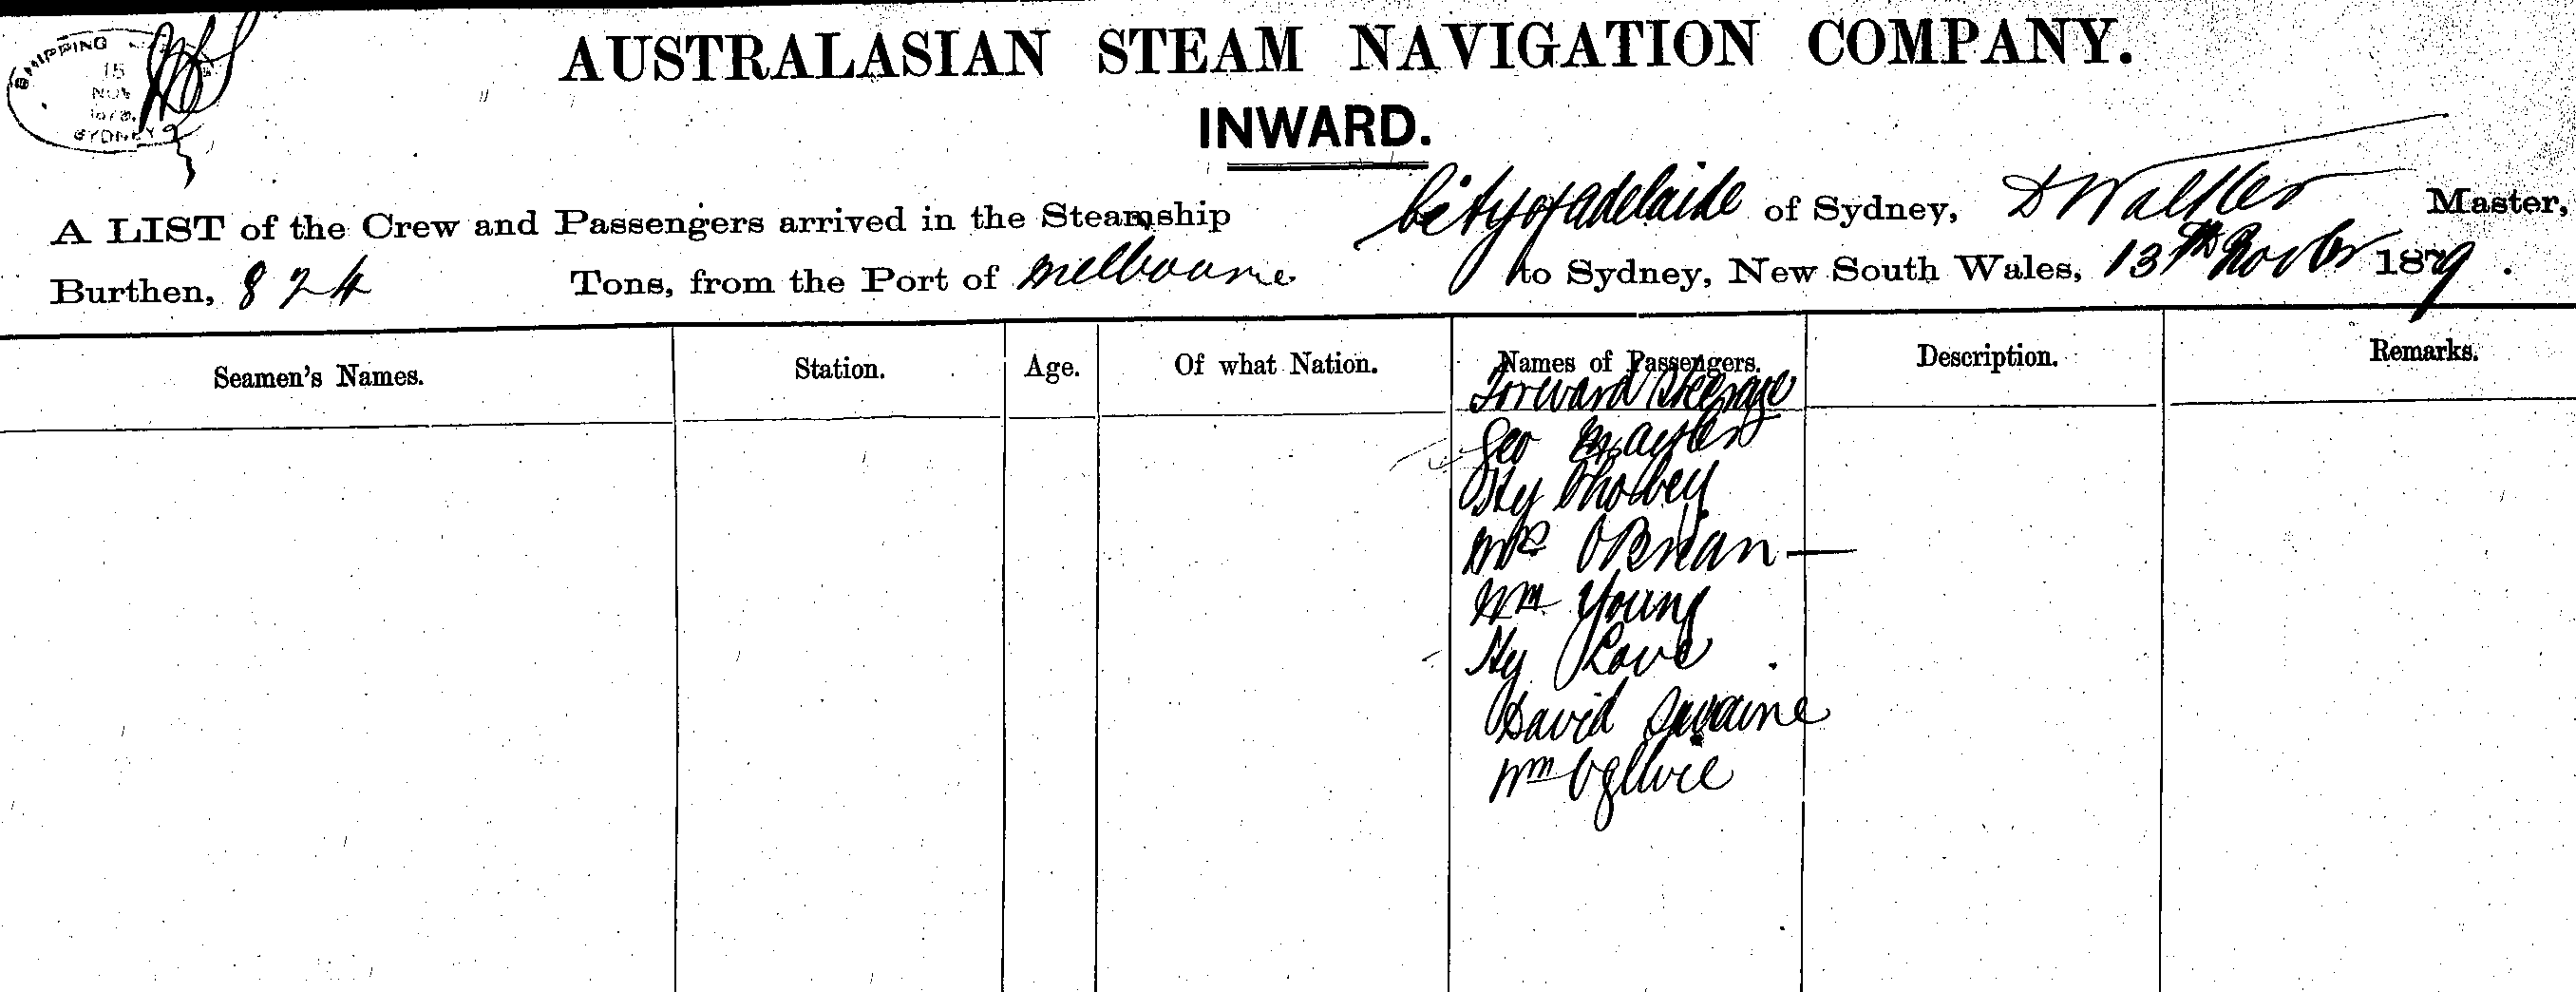 SHIPPING
15
NOV
1879
SYDNEY
AUSTRALASIAN STEAM NAVIGATION COMPANY.
INWARD.
A LIST of the Crew and Passengers arrived in the Steamship City of Adelaide of Sydney, D Walker Master,
Burthen, 824 Tons, from the Port of Melbourne to Sydney, New South Wales, 13th Novber 1879.
Seamen's Names. Station. Age. Of what Nation. Names of Passengers. Description. Remarks.
Forward Steerage
Geo
Hy
Mrs OBrian
Wm Young
Hy
David Swaine
Wm Ogilvie